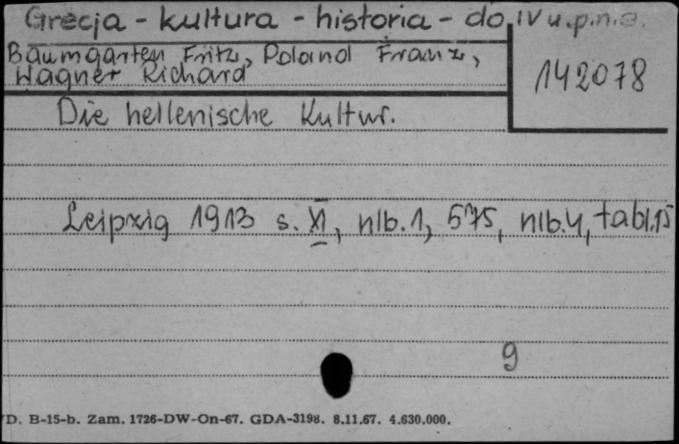 Grecja - kultura - historia - do IV w.p.n.e.
Baumgarten Fritz, Poland Franz,
Wagner Richard
142078
Die hellenische Kultur.
Leipzig 1913 s. XI, nlb.1, 575, nlb.4, tabl.15
9
D. B-15-b. Zam. 1726-DW-On-67. GDA-3198. 8.11.67. 4.630.000.